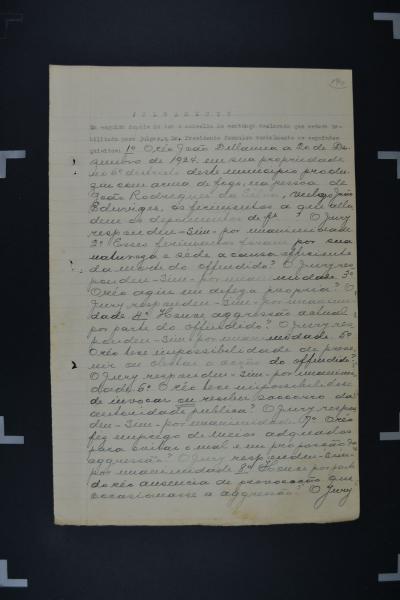 JULGAMENTO
Em seguida depois de ter o conselho de sentença declarado que estava ha-
bilitado para julgar, o Dr. Presidente formulou verbalmente os seguintes
quisitos: 1º O réo João Dellanna a 20 de De-
zembro de 1924 em sua propriedade
no 6º districto deste municipio produ-
ziu com arma de fogo, na pessoa de
João Rodrigues da Silva, vulgo João
Eduviges, os ferimentos a que allu-
dem os depoimentos de fls ? O Jury
respondeu - Sim - por unanimidade
2º Esses ferimentos foram por sua
natureza e séde a causa efficiente
da morte do offendido? O Jury res-
pondeu - Sim - por unanimidade. 3º
O réo agiu em defeza propria? O
Jury respondeu - Sim - por unanimi-
dade. 4º Houve aggressão actual
por parte do offendido? O Jury res-
pondeu - Sim - por unanimidade. 5º
O réo teve impossibilidade de preve-
nir ou obstar a acção do offendido?
O Jury respondeu - Sim - por unanimi-
dade. 6º O réo teve impossibilidade
de invocar ou receber soccorro da
autoridade publica? O Jury respon-
deu - Sim - por unanimidade. 7º O réo
fez emprego de meios adquados
para evitar o mal e em proporção da
aggressão? O Jury respondeu - Sim -
por unanimidade 8º Houve por parte
do réo ausencia de provocação que
occasionasse a aggressão? O Jury